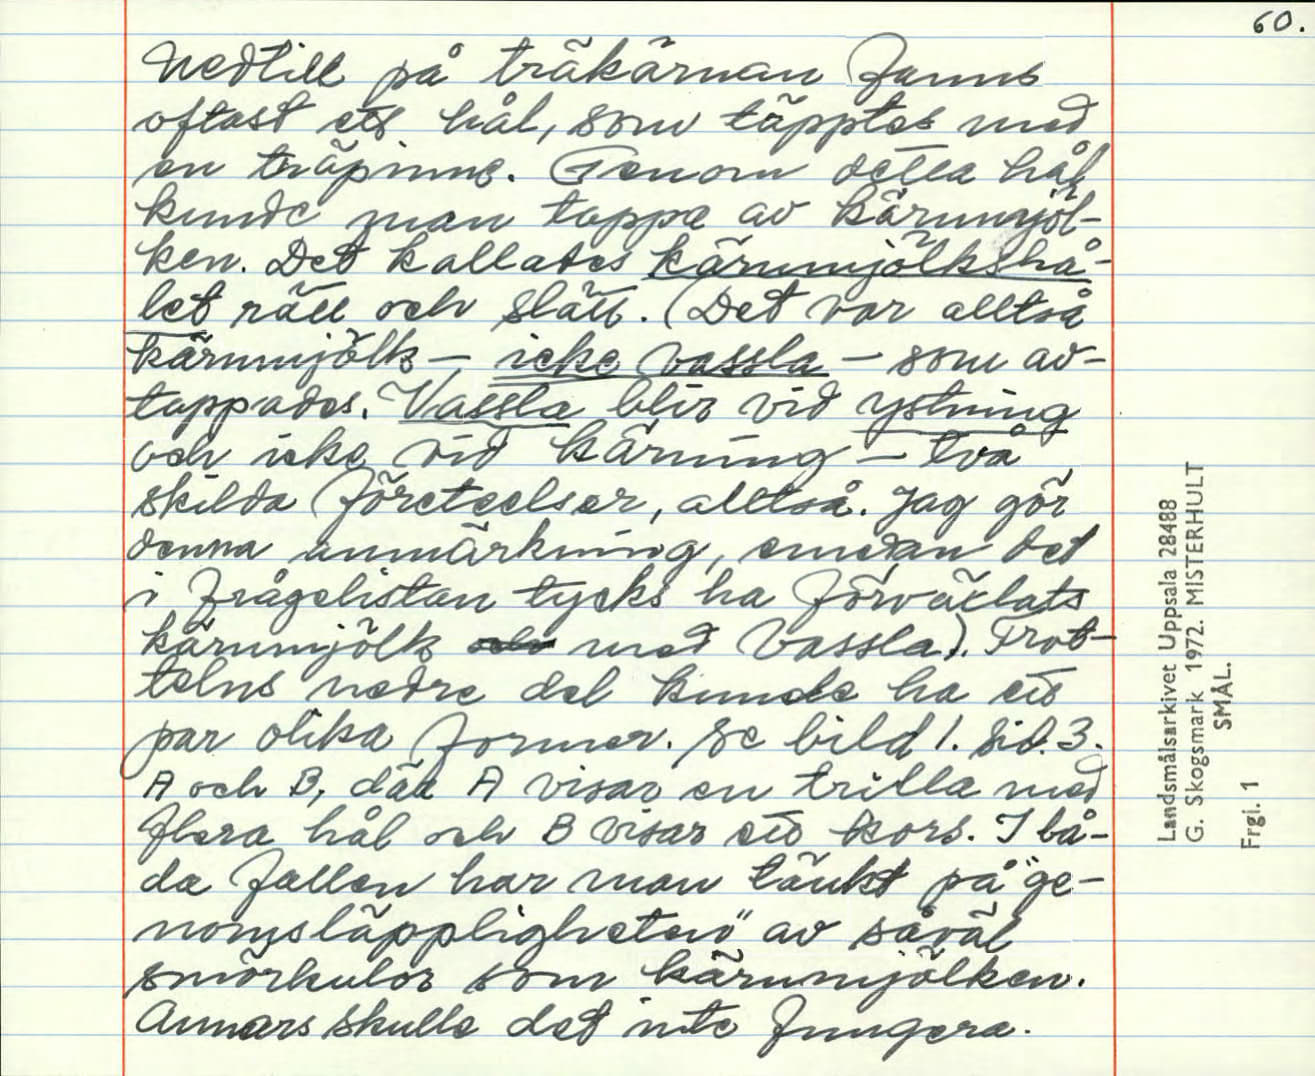 60.
Nedtill på träkärnan fanns
oftast ett hål, som täpptes med
en träpinne. Genom detta hål
kunde man tappa av kärnmjöl-
ken. Det kallades kärnmjölkshå-
let rätt och slätt. (Det var alltså
kärnmjölk – icke vassla – som av-
tappades. Vassla blir vid ystning
och icke vid kärning – två
skilda företeelser, alltså. Jag gör
denna anmärkning, emedan det
i frågelistan tycks ha förväxlats
kärnmjölk och med vassla). Trot-
telns nedre del kunde ha ett
par olika former. Se bild 1. Sid. 3.
A och B, där A visar en trilla med
flera hål och B visar ett kors. I bå-
da fallen har man tänkt på "ge-
nomsläppligheten" av såväl
smörkulor som kärnmjölken.
Annars skulle det inte fungera.
Landsmålsarkivet Uppsala 28488
G. Skogsmark 1972. MISTERHULT
SMÅL.
Frgl. 1